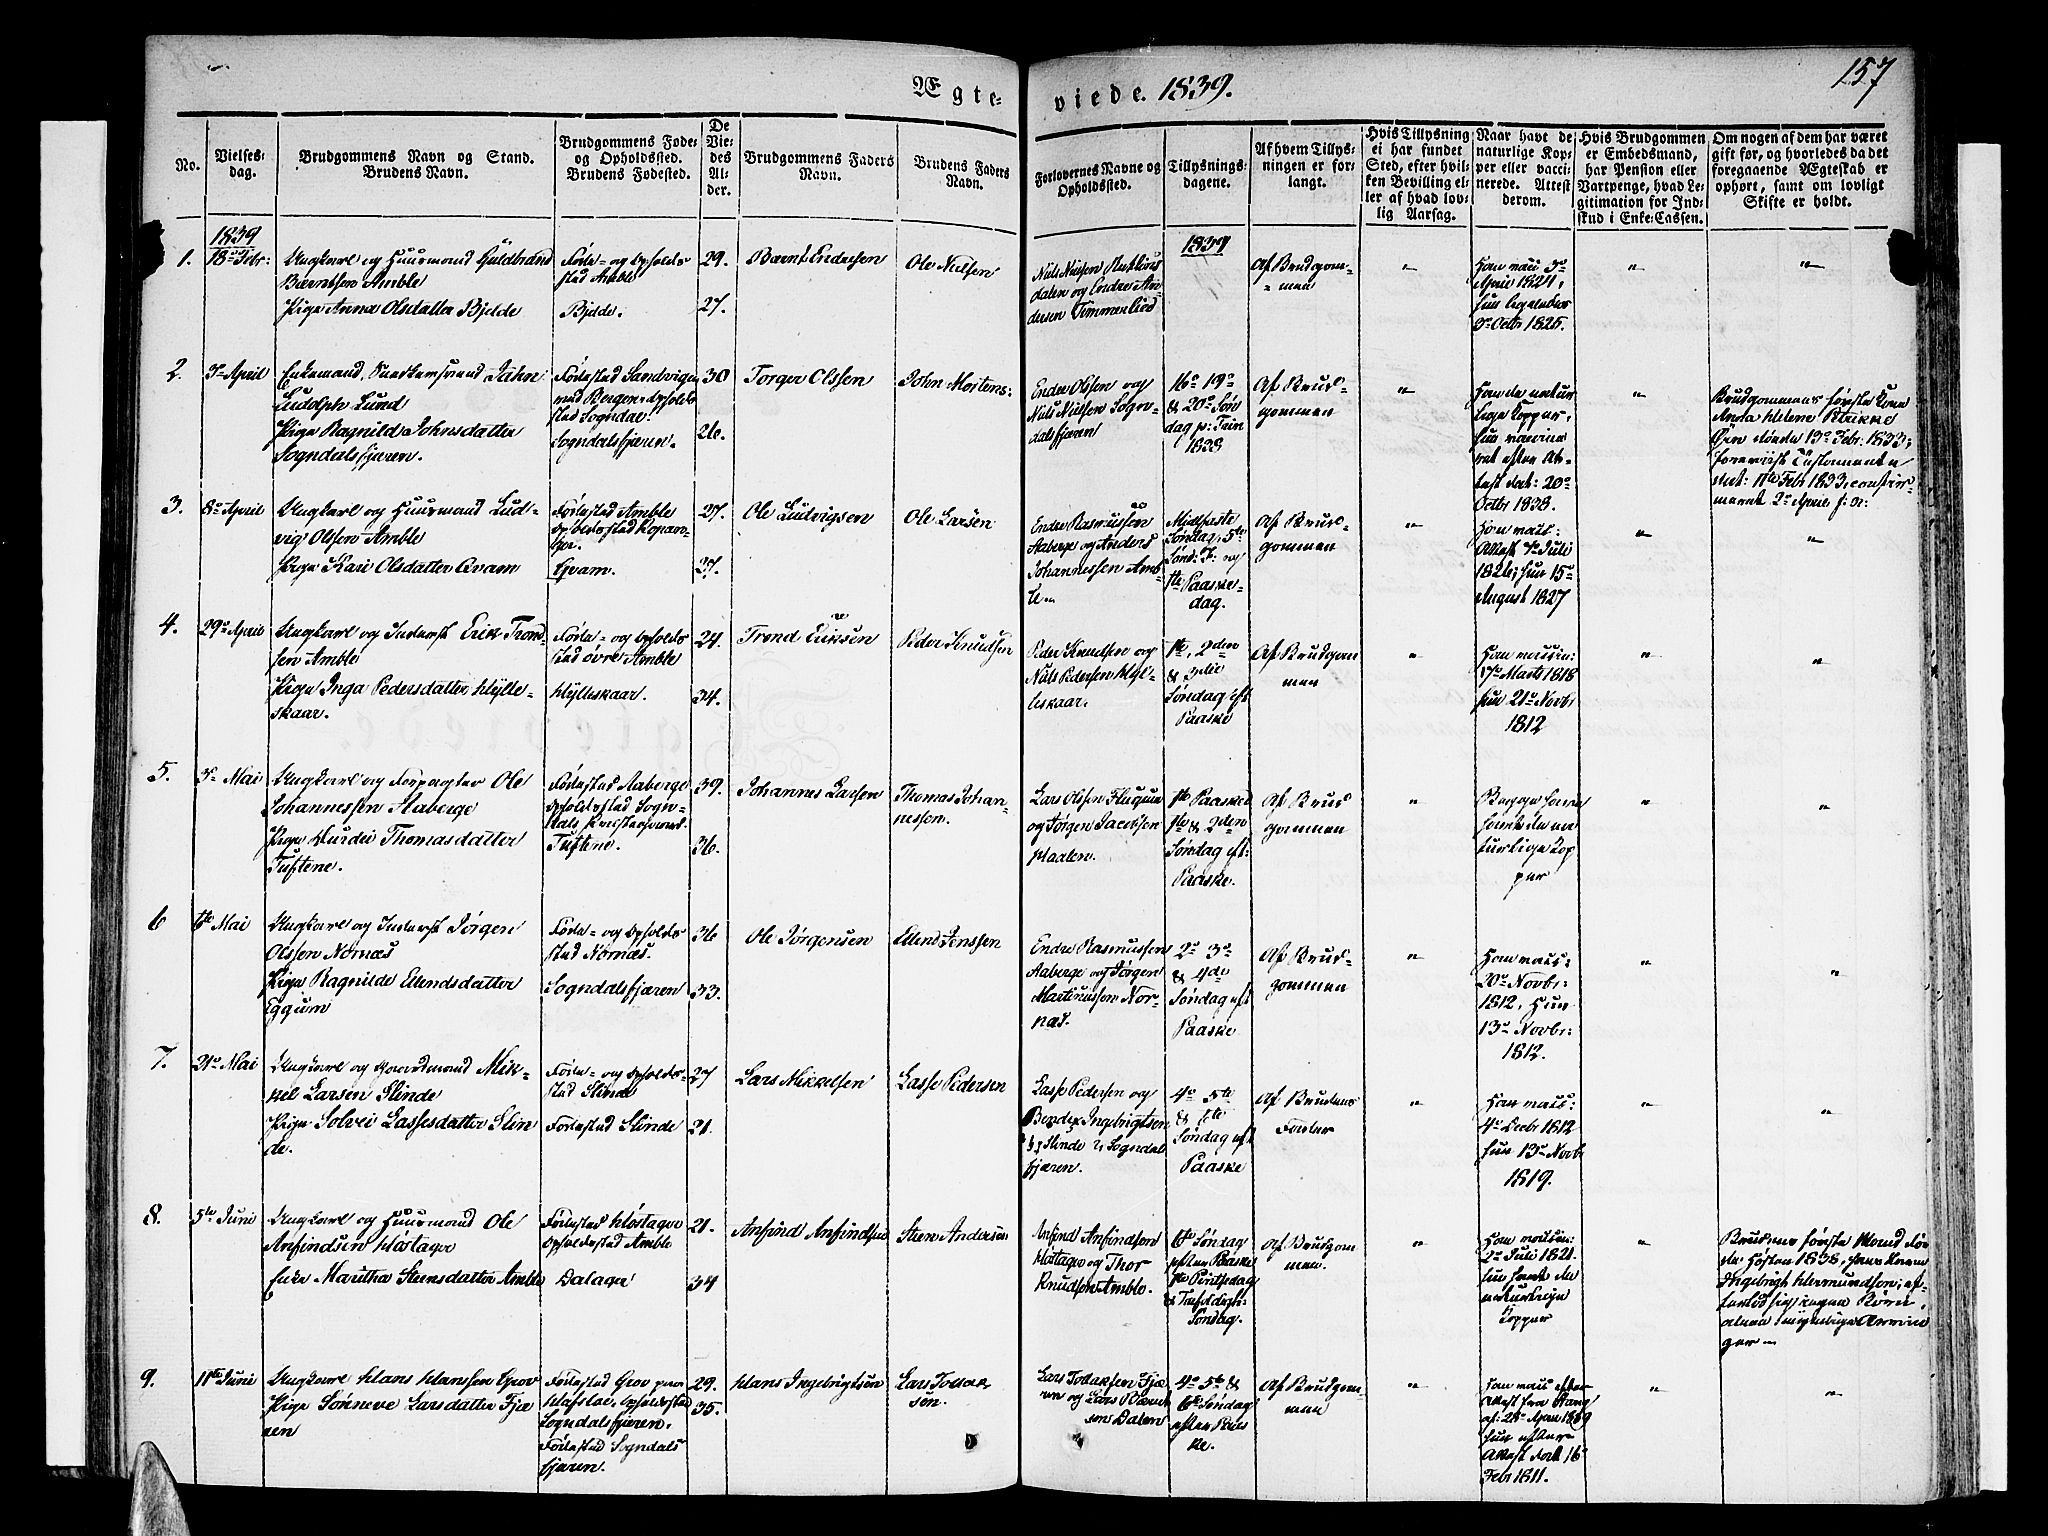 157
Ægte-
viede. 1839.
No.
Vielses-
dag.
Brudgommens Navn og Stand.
Brudens Navn.
Brudgommens Føde-
og Opholdssted.
Brudens Fødested.
De
Vie-
des
Al-
der.
Brudgommens Faders
Navn.
Brudens Faders
Navn.
Forlovernes Navne og
Opholdssted.
Tillysnings-
dagene.
Af hvem Tillys-
ningen er for-
langt.
Hvis Tillysning
ei har fundet
Sted, efter hvil-
ken Bevilling el-
ler af hvad lov-
lig Aarsag.
Naar havt de
naturlige Kop-
per eller vacci-
nerede. Attest
derom.
Hvis Brudgommen
er Embedsmand,
har Pension eller
Vartpenge, hvad Le-
gitimation for Ind-
skud i Enke-Cassen.
Om nogen af dem har været
gift før, og hvorledes da det
foregaaende Ægteskab er
ophørt, samt om lovligt
Skifte er holdt.
1839
1. 18de Febr:
Ungkarl og Huusmand
Berntsen Amble
Pige Anna Olsdatter Bjelde
Føde- og Opholds
sted Amble
Bjelde.
29.
27.
Bernt Endresen
Ole Nielsen
Niels Nielsen
dalen og Endre An
dersen Timmerlied
1839
Af Brudgom-
men
"
April 1824,
3de Octr 1825.
"
"
2. 3die April
Enkemand, Johan
Ludolph Lund
Pige Ragnild Johnsdatter
Sogndalsfjæren.
Fødested Sandvigen
ved Bergen, Opholds
sted Sogndal.
Sogndalsfjæren.
30
26.
Torger Olssen
John Mortens:
Endre Olssen og
Niels Nielsen Sogn-
dalsfjæren
16de 19de
& 20de Søn
dag p: Trin
1838
Af Brud-
gommen
"
Han de natur
lige Kopper,
hun vaccine
ret efter At-
test dat: 20de
Octbr 1838.
"
Brudgommens første Kone
Anna Helene
døde 13de Febr: 1833;
3. 8de April
Ungkarl og Huusmand Lud-
vig Olssen Amble
Pige Kari Olsdatter Qvam
Fødested Amble
Opholdssted Kopan-
ger.
Qvam.
27.
37.
Ole Ludvigsen
Ole Larsen
Endre Rasmussen
Aaberge og Anders
Johannessen Amb-
le.
Midfaste
Søndag, 5te
Sønd: F: og
1ste Paaske-
dag.
Af Brud-
gommen
"
Han vacc:
Attest 4de Juli
1826, hun 15de
August 1827
"
"
4. 29de April
Ungkarl og Inderst Erik Trond-
sen Amble
Pige Inga Pedersdatter Hylle-
skaar.
Føde- og Opholds
sted øvre Amble
Hylleskaar.
24.
34.
Trond Eriksen
Peder Knudsen
Peder Knudsen og
Niels Pedersen Hyl-
leskaar.
1ste, 2den
& 3die
Søndag eft
Paaske
Af Brudgom
men
"
Han vaccin:
17de Marts 1818
hun 21de Novbr
1812
"
"
5. 3die Mai
Ungkarl og Forpagter Ole
Johannessen Aaberge
Pige Durdei Thomasdatter
Tuftene.
Fødested Aaberge
Opholdssted Sogn-
dals Præstegaard.
Tuftene.
39.
36.
Johannes Larsen
Thomas Johan-
nessen.
Lars Olssen Flugum
og Jørgen Jacobsen
1ste Paasked
1ste & 2den
Søndag eft:
Paaske.
Af Brud
gommen
"
Begge have
havt de na
turlige Kop
per
"
"
6 6te Mai
Ungkarl og Inderst Jørgen
Olssen Nornæs
Pige Ragnilde Erlendsdatter
Eggum
Føde- og Opholds
sted Nornæs.
Sogndalsfjæren
36
33.
Ole Jørgensen
Erlend Jenssen
Endre Rasmussen
Aaberge og Jørgen
Martinussen Nor-
næs.
2de 3de
& 4de
Søndag eft
Paaske
Af Brud-
gommen
"
Han vacc:
20de Novbr:
1812, Hun
13de Novbr:
1812.
"
"
7. 21de Mai
Ungkarl og Gaardmand Mik-
kel Larsen Slinde
Pige Solvei Lassesdatter Slin
de.
Føde- og Opholds-
sted Slinde
Fødested Slinde
27
21.
Lars Mikkelsen
Lasse Pedersen
Lasse Pedersen og
Bendix Ingebrigtsen
Slinde Sogndal
fjæren.
4de 5te
& 6te
Søndag eft
Paaske
Af Brudens
Fader
"
Han vacc:
4de Decbr 1812
hun 13de Novb
1819.
"
"
8. 5te Juni
Ungkarl og Huusmand Ole
Anfindsen Kløstager
Enke Maritha Steensdatter Amble
Fødested Kløstager
Opholdssted Amble
Dalager
21.
34
Anfind Anfindsen
Steen Andersen
Anfind Anfindsen
og Thor
Knudsen Amble.
6te Søndag
efter Paaske
1ste Pintsedag
& Trefoldigh:
Søndag.
Af Brudgom
men.
"
Han vaccin:
2de Juli 1821.
hun havt de
naturlige
Kopper
"
Brudens første Mand dø-
de Høsten 1838, hans Navn
Ingebrigt Hermundsen, ef-
terlod sig ingen Børn,
alene myndige Arvin
ger
9. 11te Juni
Ungkarl Hans Hanssen Grov
Pige Sønneve Larsdatter Fjæ
ren
Fødested Grov paa
Hafsloe, Opholdssted
Sogndalsfjæren.
Fødested Sogndals
fjæren.
29.
35.
Hans Ingebrigtsen
Lars Tollak
sen.
Lars Tollaksen Fjæ
ren og Lars Bernt
sen Dalen
4de 5te &
6te Søndag
efter Paas
ke.
Af Brudgom
men
"
Han vacc efter
Attest fra
af: 24de April 1819
hun efter
Attest dat 16
Febr 1811.
"
"